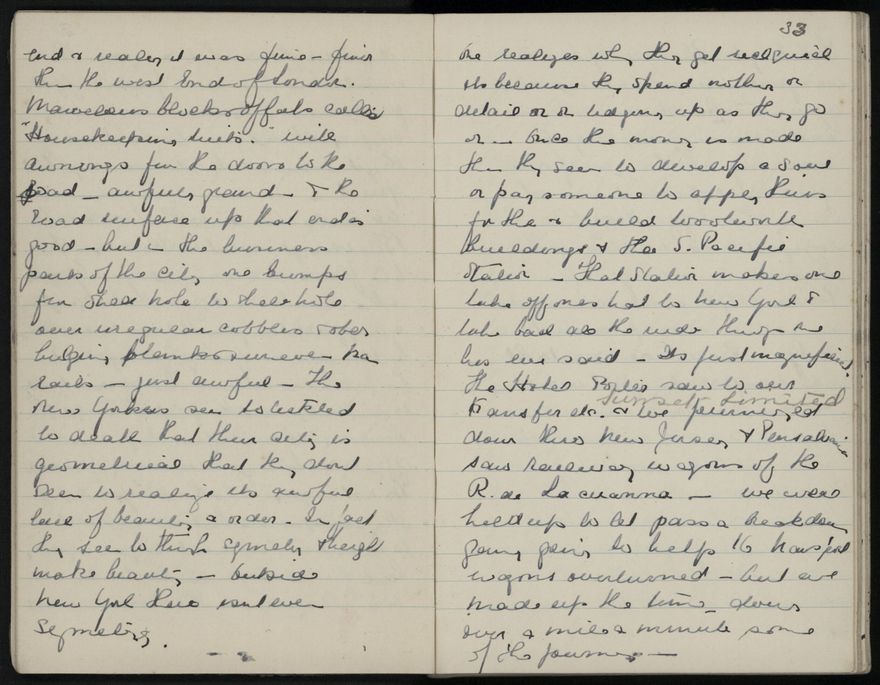 end & really it was fine – finer
than the west End of London.
Marvelous blocks of flats called
"Housekeeping suits." with
awnings from the doors to the
road – awfully grand – & the
road surface up that end is
good – but in the business
parts of the city one bumps
from shell hole to shell hole
over irregular cobbles & other
bulging planks & uneven tram
rails – just awful – The
New Yorkers seem so tickled
to death that their city is
geometrical that they don't
seem to realize its awful
lack of beauty & order. In fact
they seem to think symetry & height
make beauty – beside
New York there isn't even
Symetry.
33
One realizes why they get
its because they spend nothing on
detail or on tidying up as they go
on – Once the money is made
then they seem to develop a soul
or pay someone to apply theirs
for the & build Woolworth
Buildings & the S. Pacific
Station – That Station makes one
take off ones hat to New York &
take back all the rude things one
has ever said – Its just magnificent.
The Hotel Porter saw to our
Sunset Limited
transfer etc. & we journeyed
down thro New Jersey & Pensalvania
saw railway wagons of the
R. de Lacuanna – we were
held up to let pass a breakdown
gang going to help 16 transport
wagons overturned – but we
made up the time – doing
over a mile a minute some
of the journey –